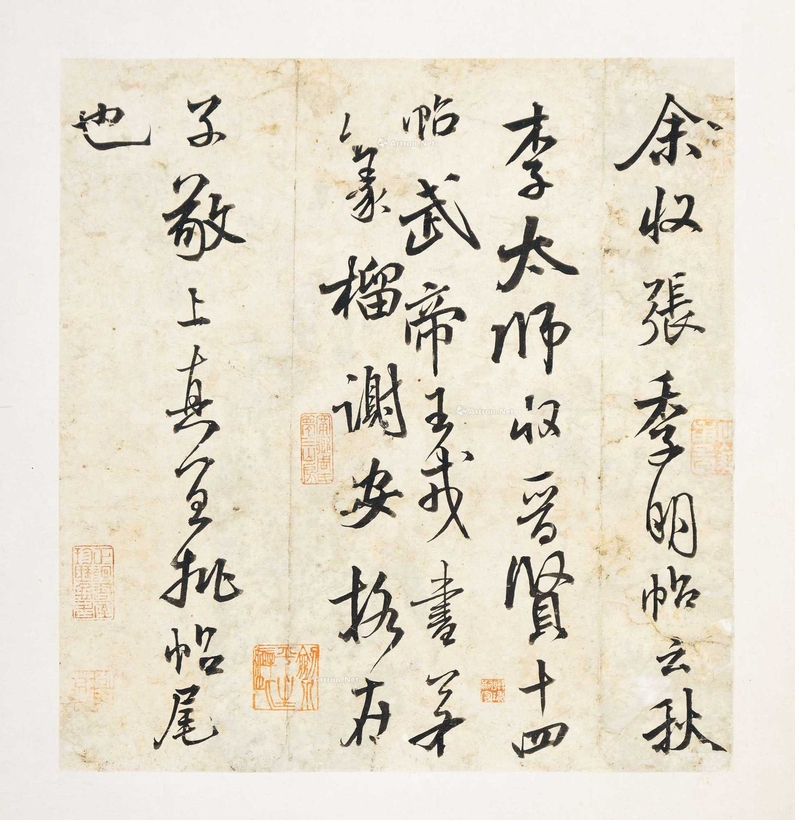 余收張季明帖云秋
李太師收晉賢十四
帖武帝王戎書若
篆籀謝安格在
子敬上真宜批帖尾
也
Artron.Net